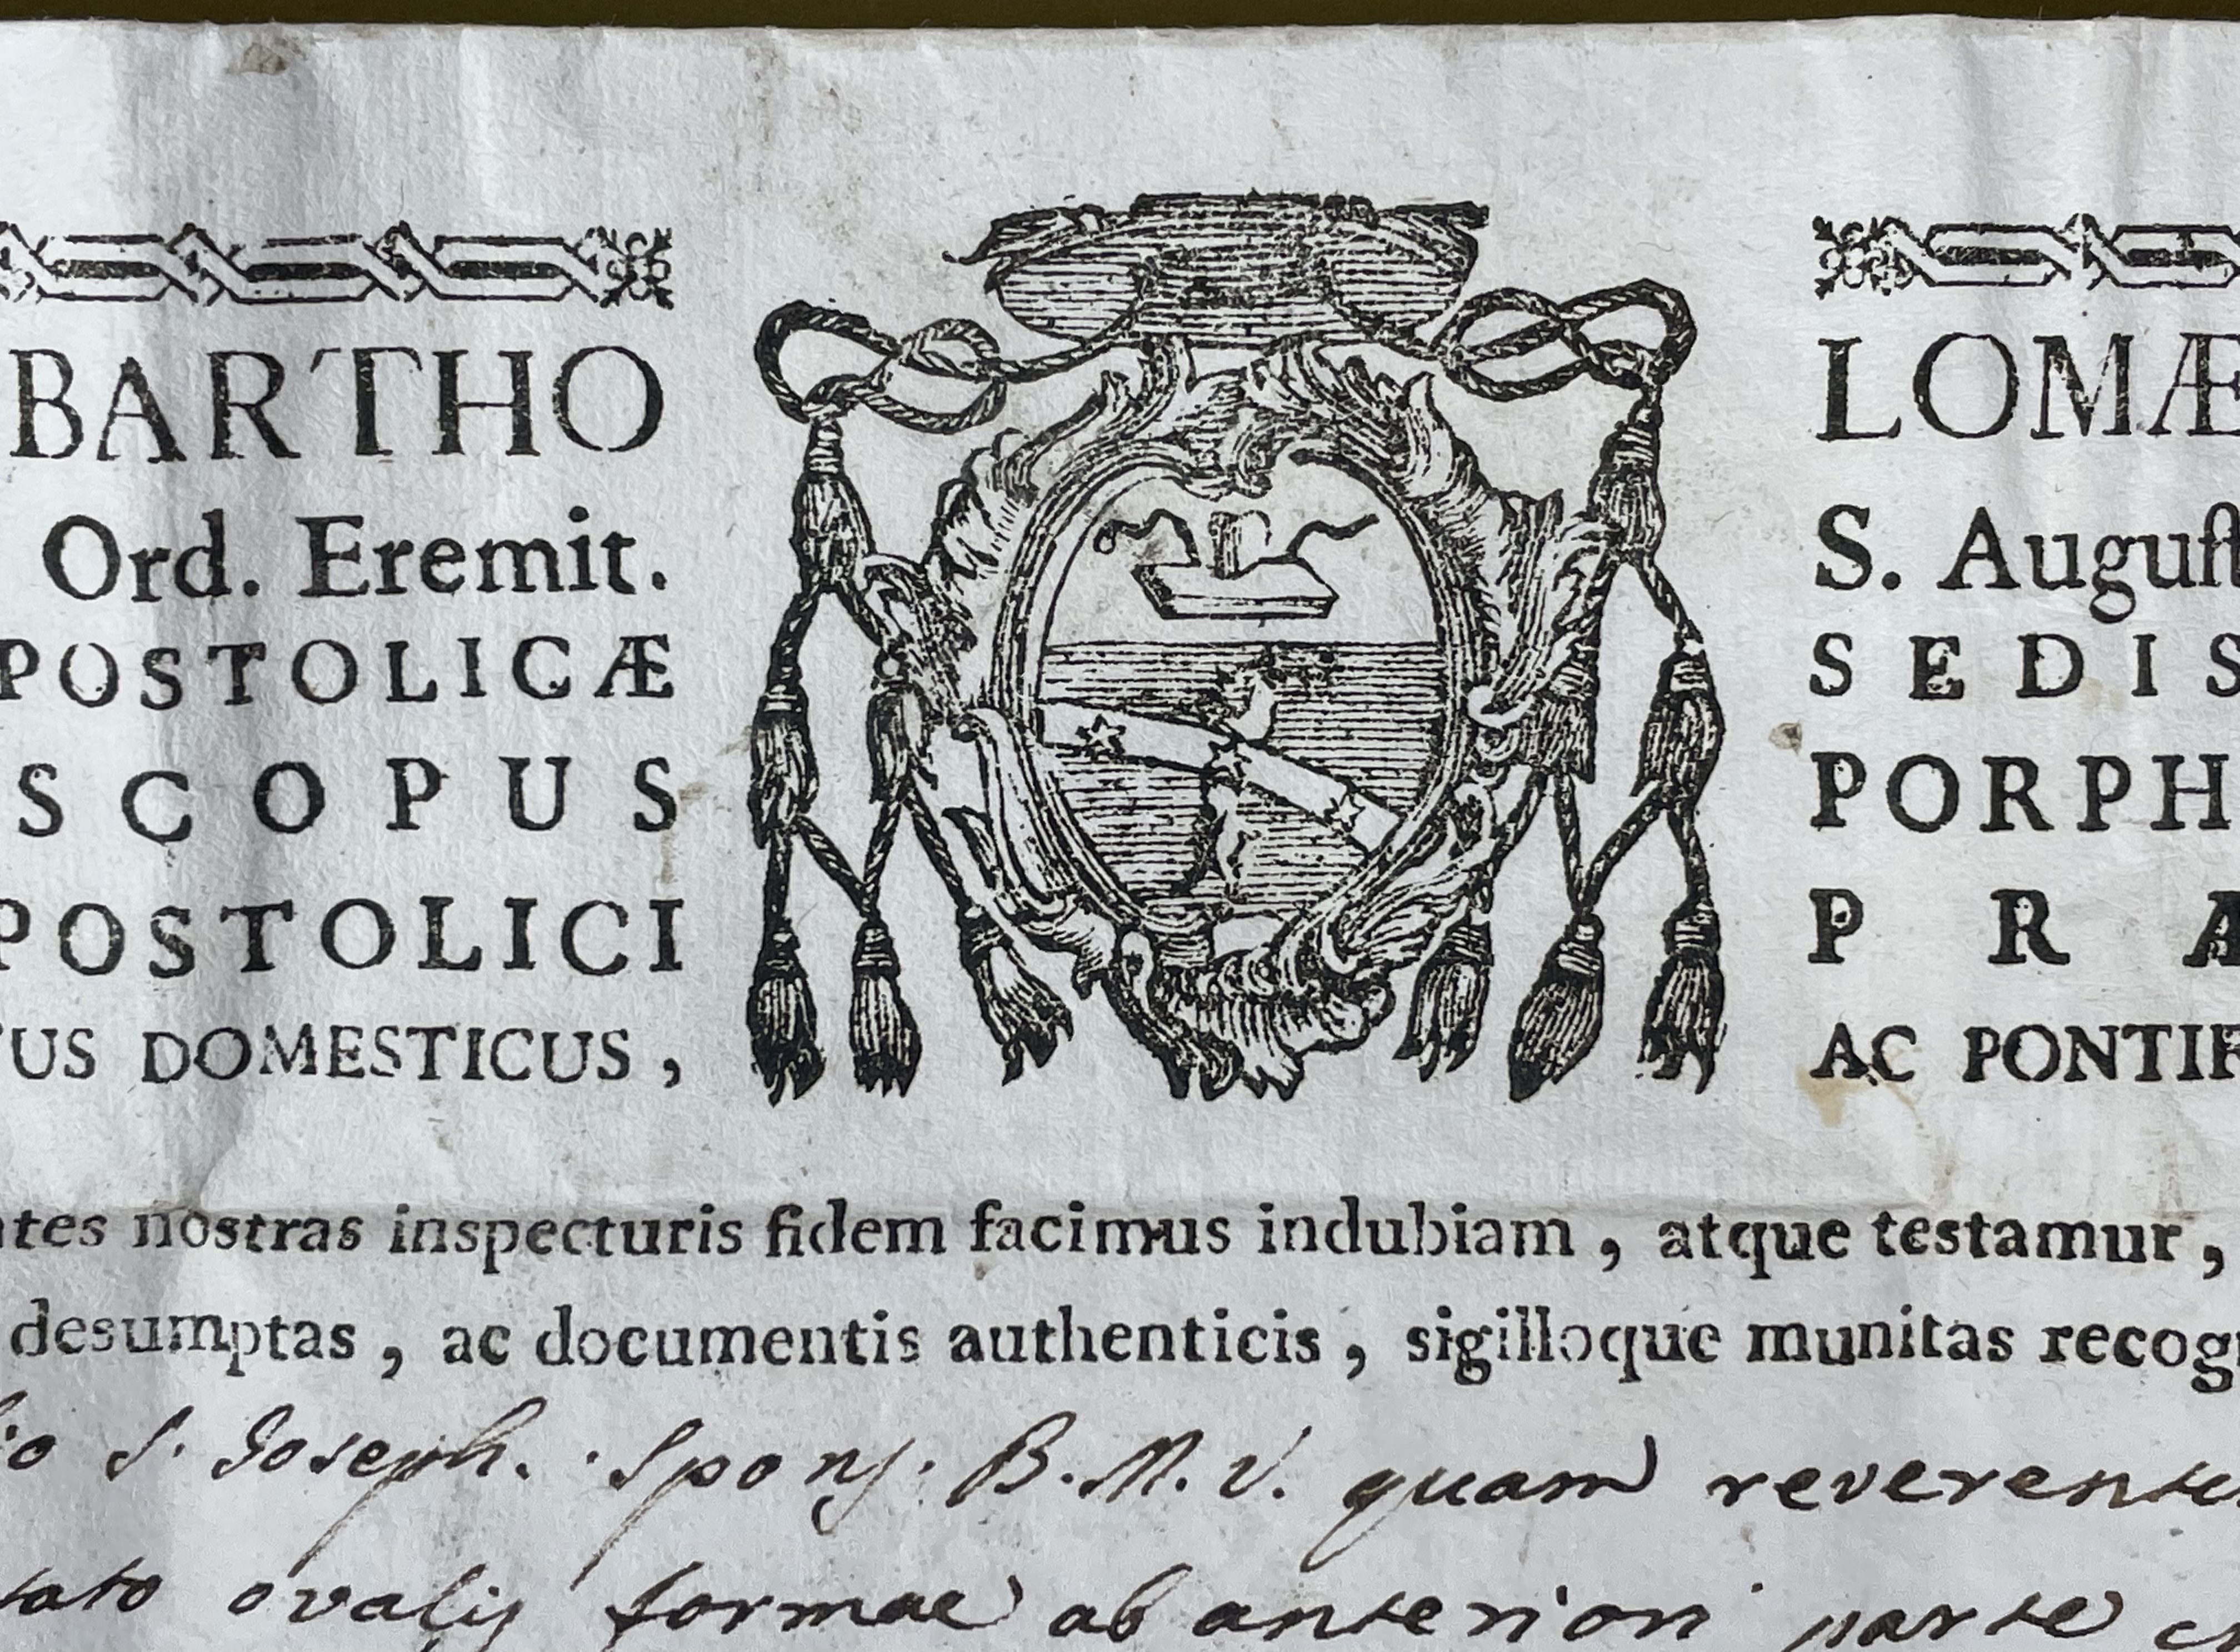 BARTHO LOMÆ
Ord. Eremit. S. Auguſt
POSTOLICÆ SEDIS
SCOPUS PORPH
POSTOLICI PRA
TUS DOMESTICUS, AC PONTIF
ntes nostras inspecturis fidem facimus indubiam, atque testamur,
desumptas, ac documentis authenticis, sigilloque munitas recog
S. Joseph. Spons. B. M. V. quam reverenter
ovalis formae ab anteriori parte